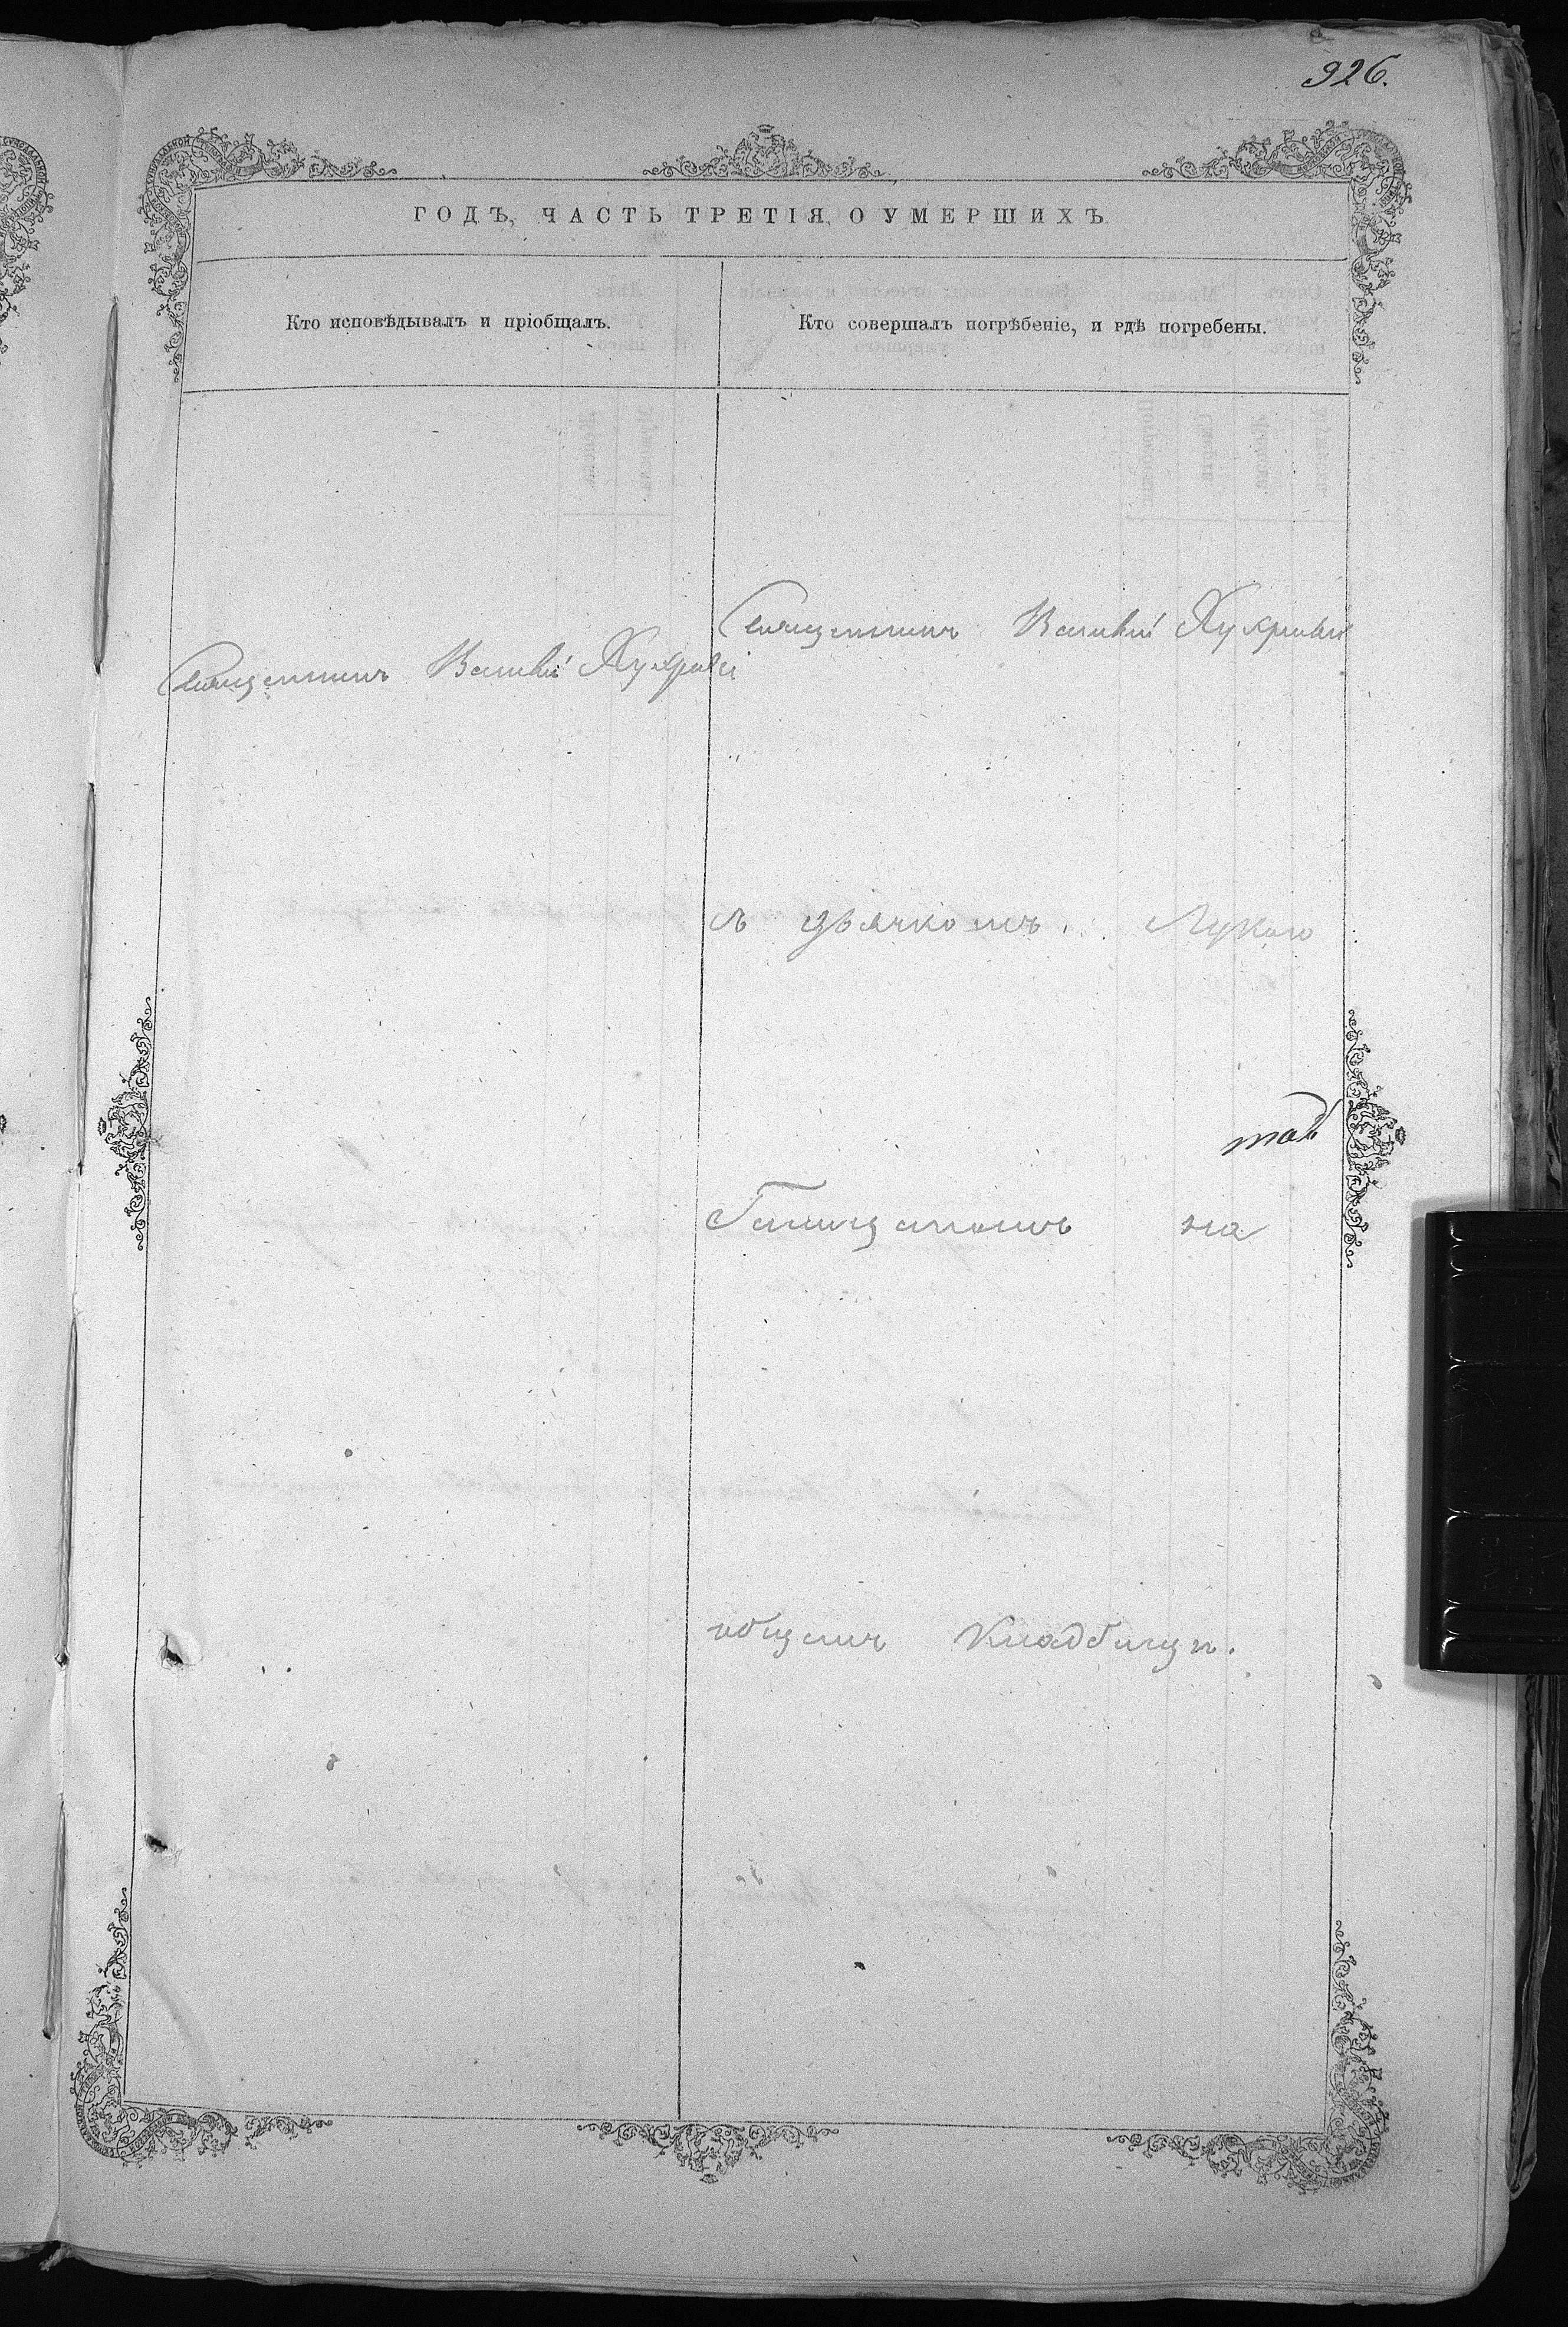 926.
ГОДЪ, ЧАСТЬ ТРЕТІЯ, О УМЕРШИХЪ.
Кто исповѣдывалъ и пріобщалъ.
Кто совершалъ погрѣбеніе, и гдѣ погребены.
Священникъ Василій
Священникъ Василій
съ дьячкомъ Лукою
на
общемъ кладбищѣ.